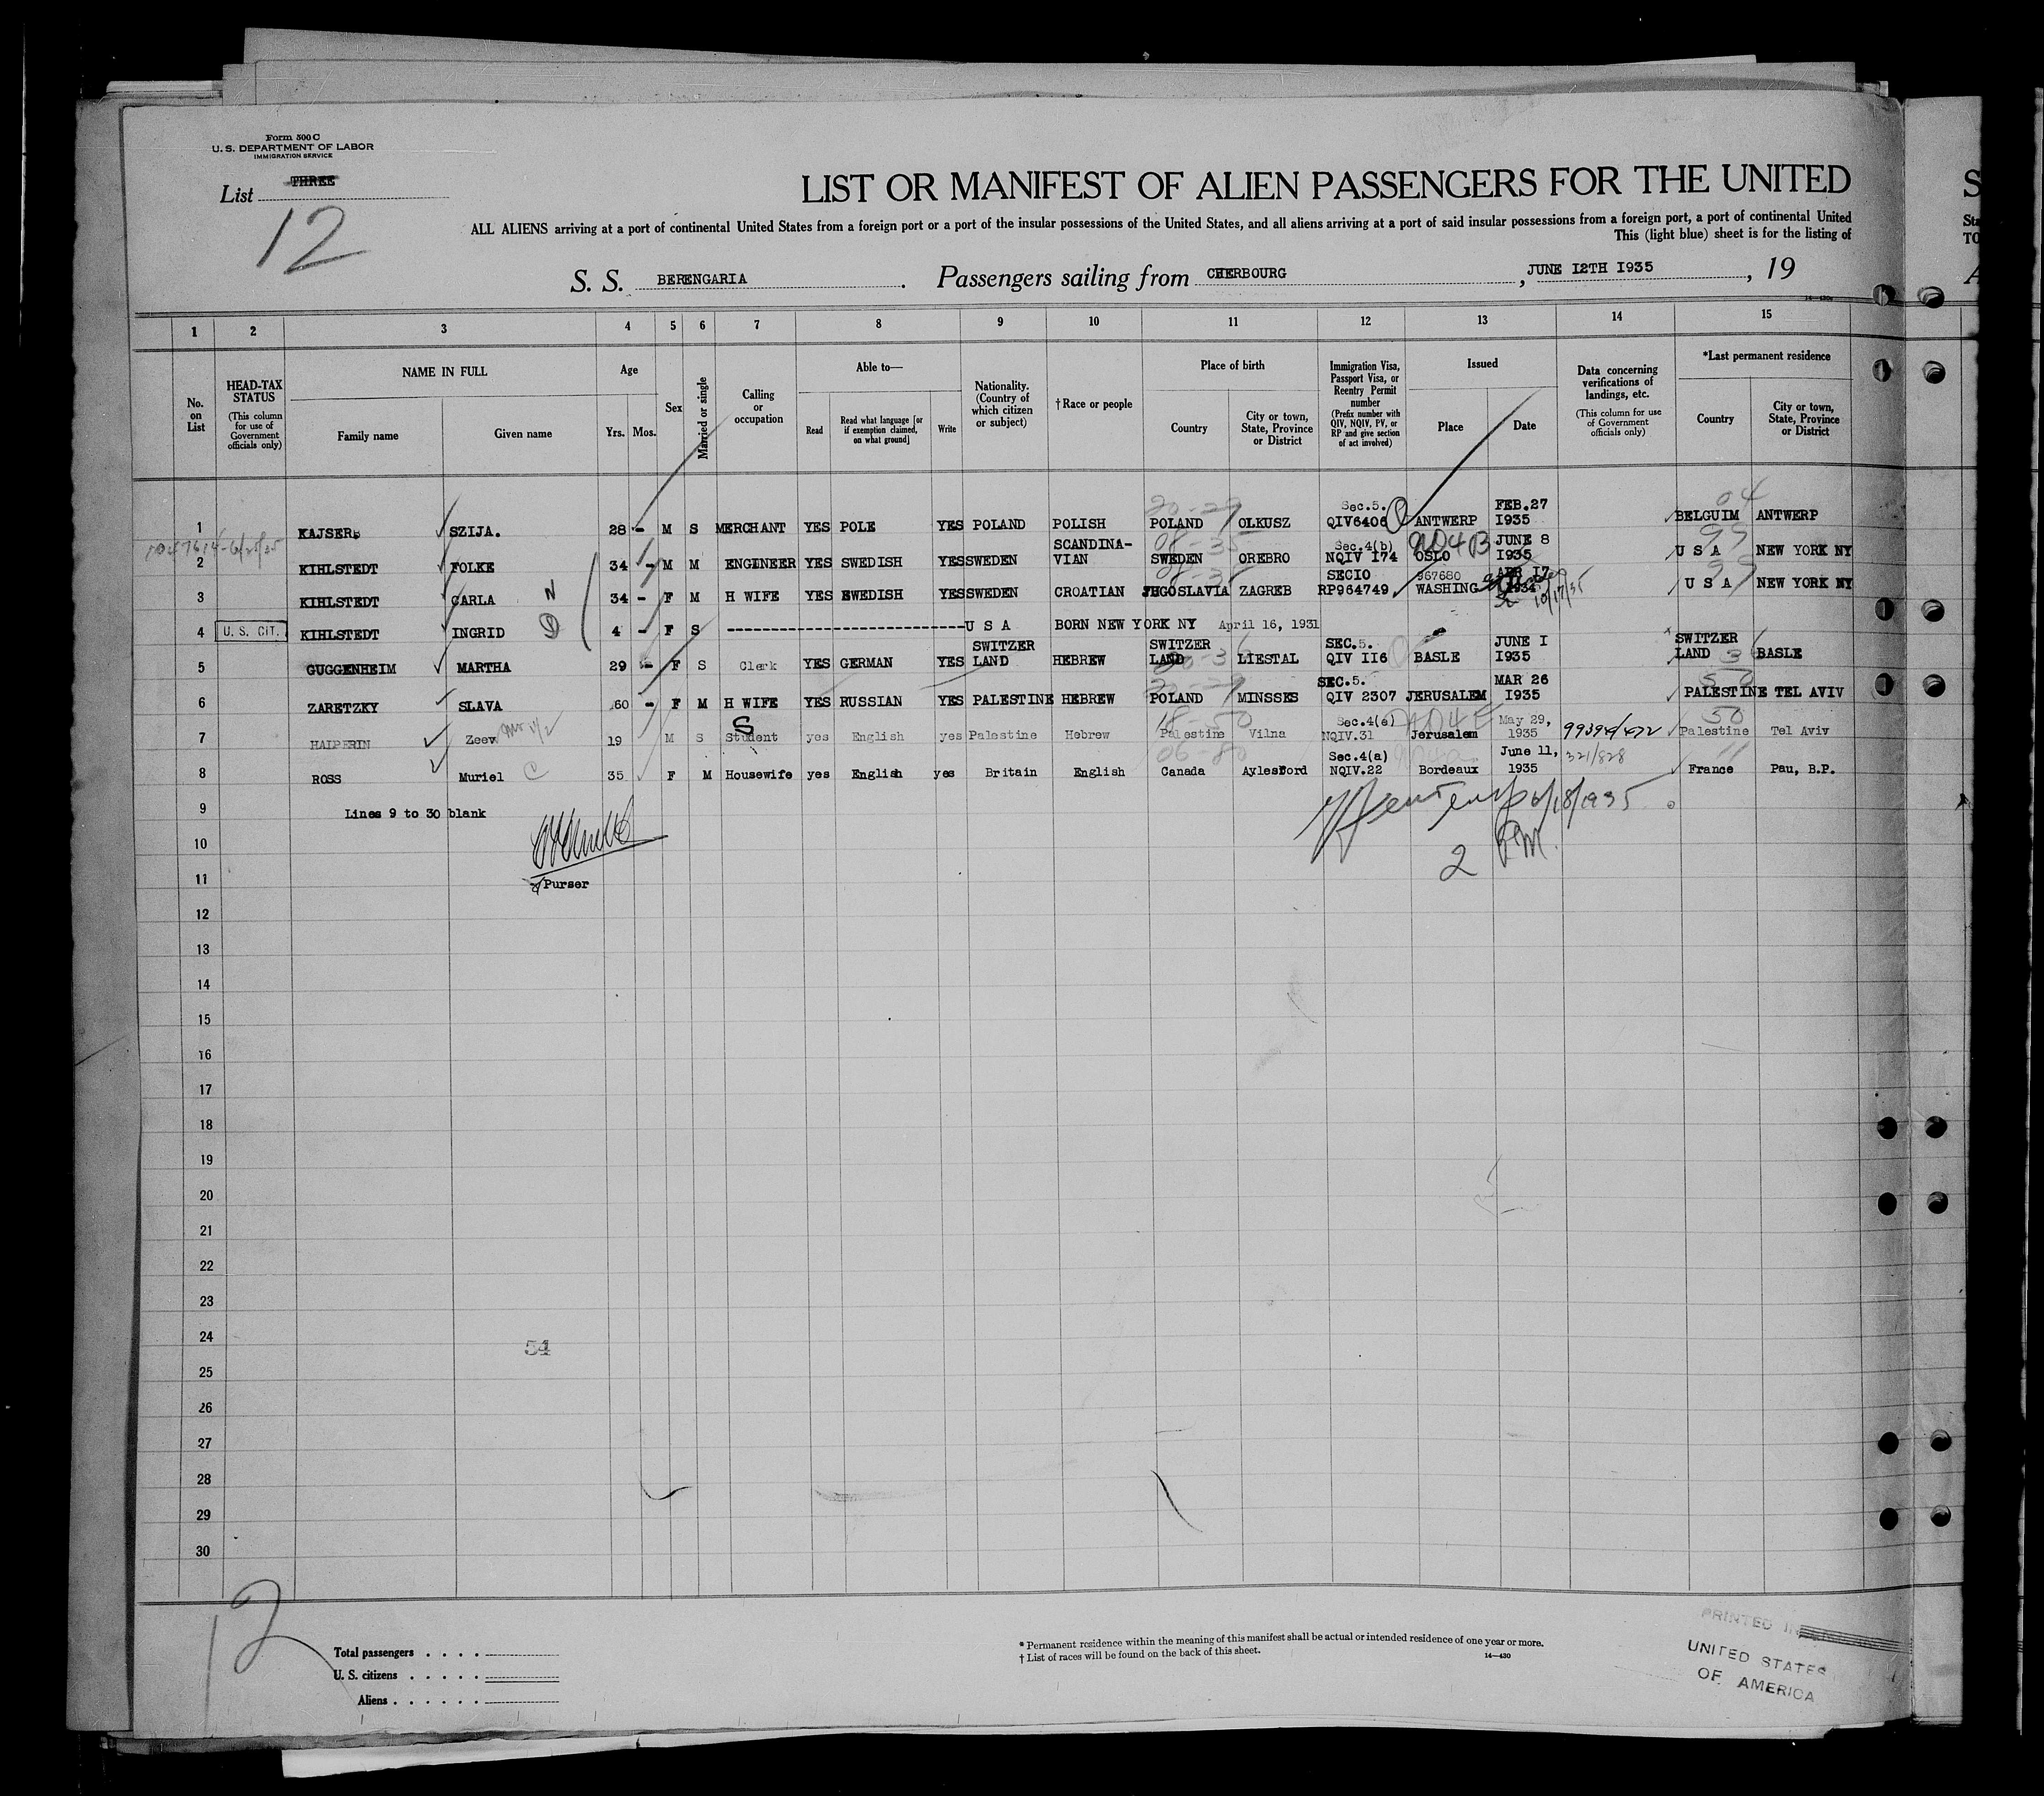 Form 500 C
U. S. DEPARTMENT OF LABOR
IMMIGRATION SERVICE
List THREE
12
LIST OR MANIFEST OF ALIEN PASSENGERS FOR THE UNITED
ALL ALIENS arriving at a port of continental United States from a foreign port or a port of the insular possessions of the United States, and all aliens arriving at a port of said insular possessions from a foreign port, a port of continental United
This (light blue) sheet is for the listing of
S. S. BERENGARIA. Passengers sailing from CHERBOURG, JUNE 12TH I935, 19
1 2 3 4 5 6 7 8 9 10 11 12 13 14 15
No. on List
HEAD-TAX STATUS (This column for use of Government officials only)
NAME IN FULL
Family name Given name
Age
Yrs. Mos.
Sex
Married or single
Calling or occupation
Able to—
Read Read what language [or if exemption claimed, on what ground] Write
Nationality. (Country of which citizen or subject)
†Race or people
Place of birth
Country City or town, State, Province or District
Immigration Visa, Passport Visa, or Reentry Permit number (Prefix number with QIV, NQIV, PV, or RP and give section of act involved)
Issued
Place Date
Data concerning verifications of landings, etc. (This column for use of Government officials only)
*Last permanent residence
Country City or town, State, Province or District
1 KAJSER SZIJA. 28 - M S MERCHANT YES POLE YES POLAND POLISH POLAND OLKUSZ Sec.5. QIV6406 ANTWERP FEB.27 I935 BELGUIM ANTWERP
2 KIHLSTEDT FOLKE 34 - M M ENGINEER YES SWEDISH YES SWEDEN SCANDINA-VIAN SWEDEN OREBRO Sec.4(b) NQIV I74 OSLO JUNE 8 I935 U S A NEW YORK NY
3 KIHLSTEDT CARLA N 34 - F M H WIFE YES SWEDISH YES SWEDEN CROATIAN JUGOSLAVIA ZAGREB SECIO RP964749 967680 WASHING APR I7 I934 10/17/35 U S A NEW YORK NY
4 U. S. CIT. KIHLSTEDT INGRID 4 - F S ---------- U S A BORN NEW YORK NY April 16, 1931
5 GUGGENHEIM MARTHA 29 - F S Clerk YES GERMAN YES SWITZER LAND HEBREW SWITZER LAND LIESTAL SEC.5. QIV II6 BASLE JUNE I I935 SWITZER LAND BASLE
6 ZARETZKY SLAVA 60 - F M H WIFE YES RUSSIAN YES PALESTINE HEBREW POLAND MINSSES SEC.5. QIV 2307 JERUSALEM MAR 26 I935 PALESTINE TEL AVIV
7 HALPERIN Zeev 19 M S Student yes English yes Palestine Hebrew Palestine Vilna Sec.4(e) NQIV.31 Jerusalem May 29, 1935 99394/472 Palestine Tel Aviv
8 ROSS Muriel 35 F M Housewife yes English yes Britain English Canada Aylesford Sec.4(a) NQIV.22 Bordeaux June 11, 1935 321/828 France Pau, B.P.
9 Lines 9 to 30 blank
6/18/1935
10
2 PM.
11 Purser
12
13
14
15
16
17
18
19
20
21
22
23
24 54
25
26
27
28
29
30
12
Total passengers
U. S. citizens
Aliens
* Permanent residence within the meaning of this manifest shall be actual or intended residence of one year or more.
† List of races will be found on the back of this sheet.
14—430
PRINTED IN
UNITED STATES
OF AMERICA